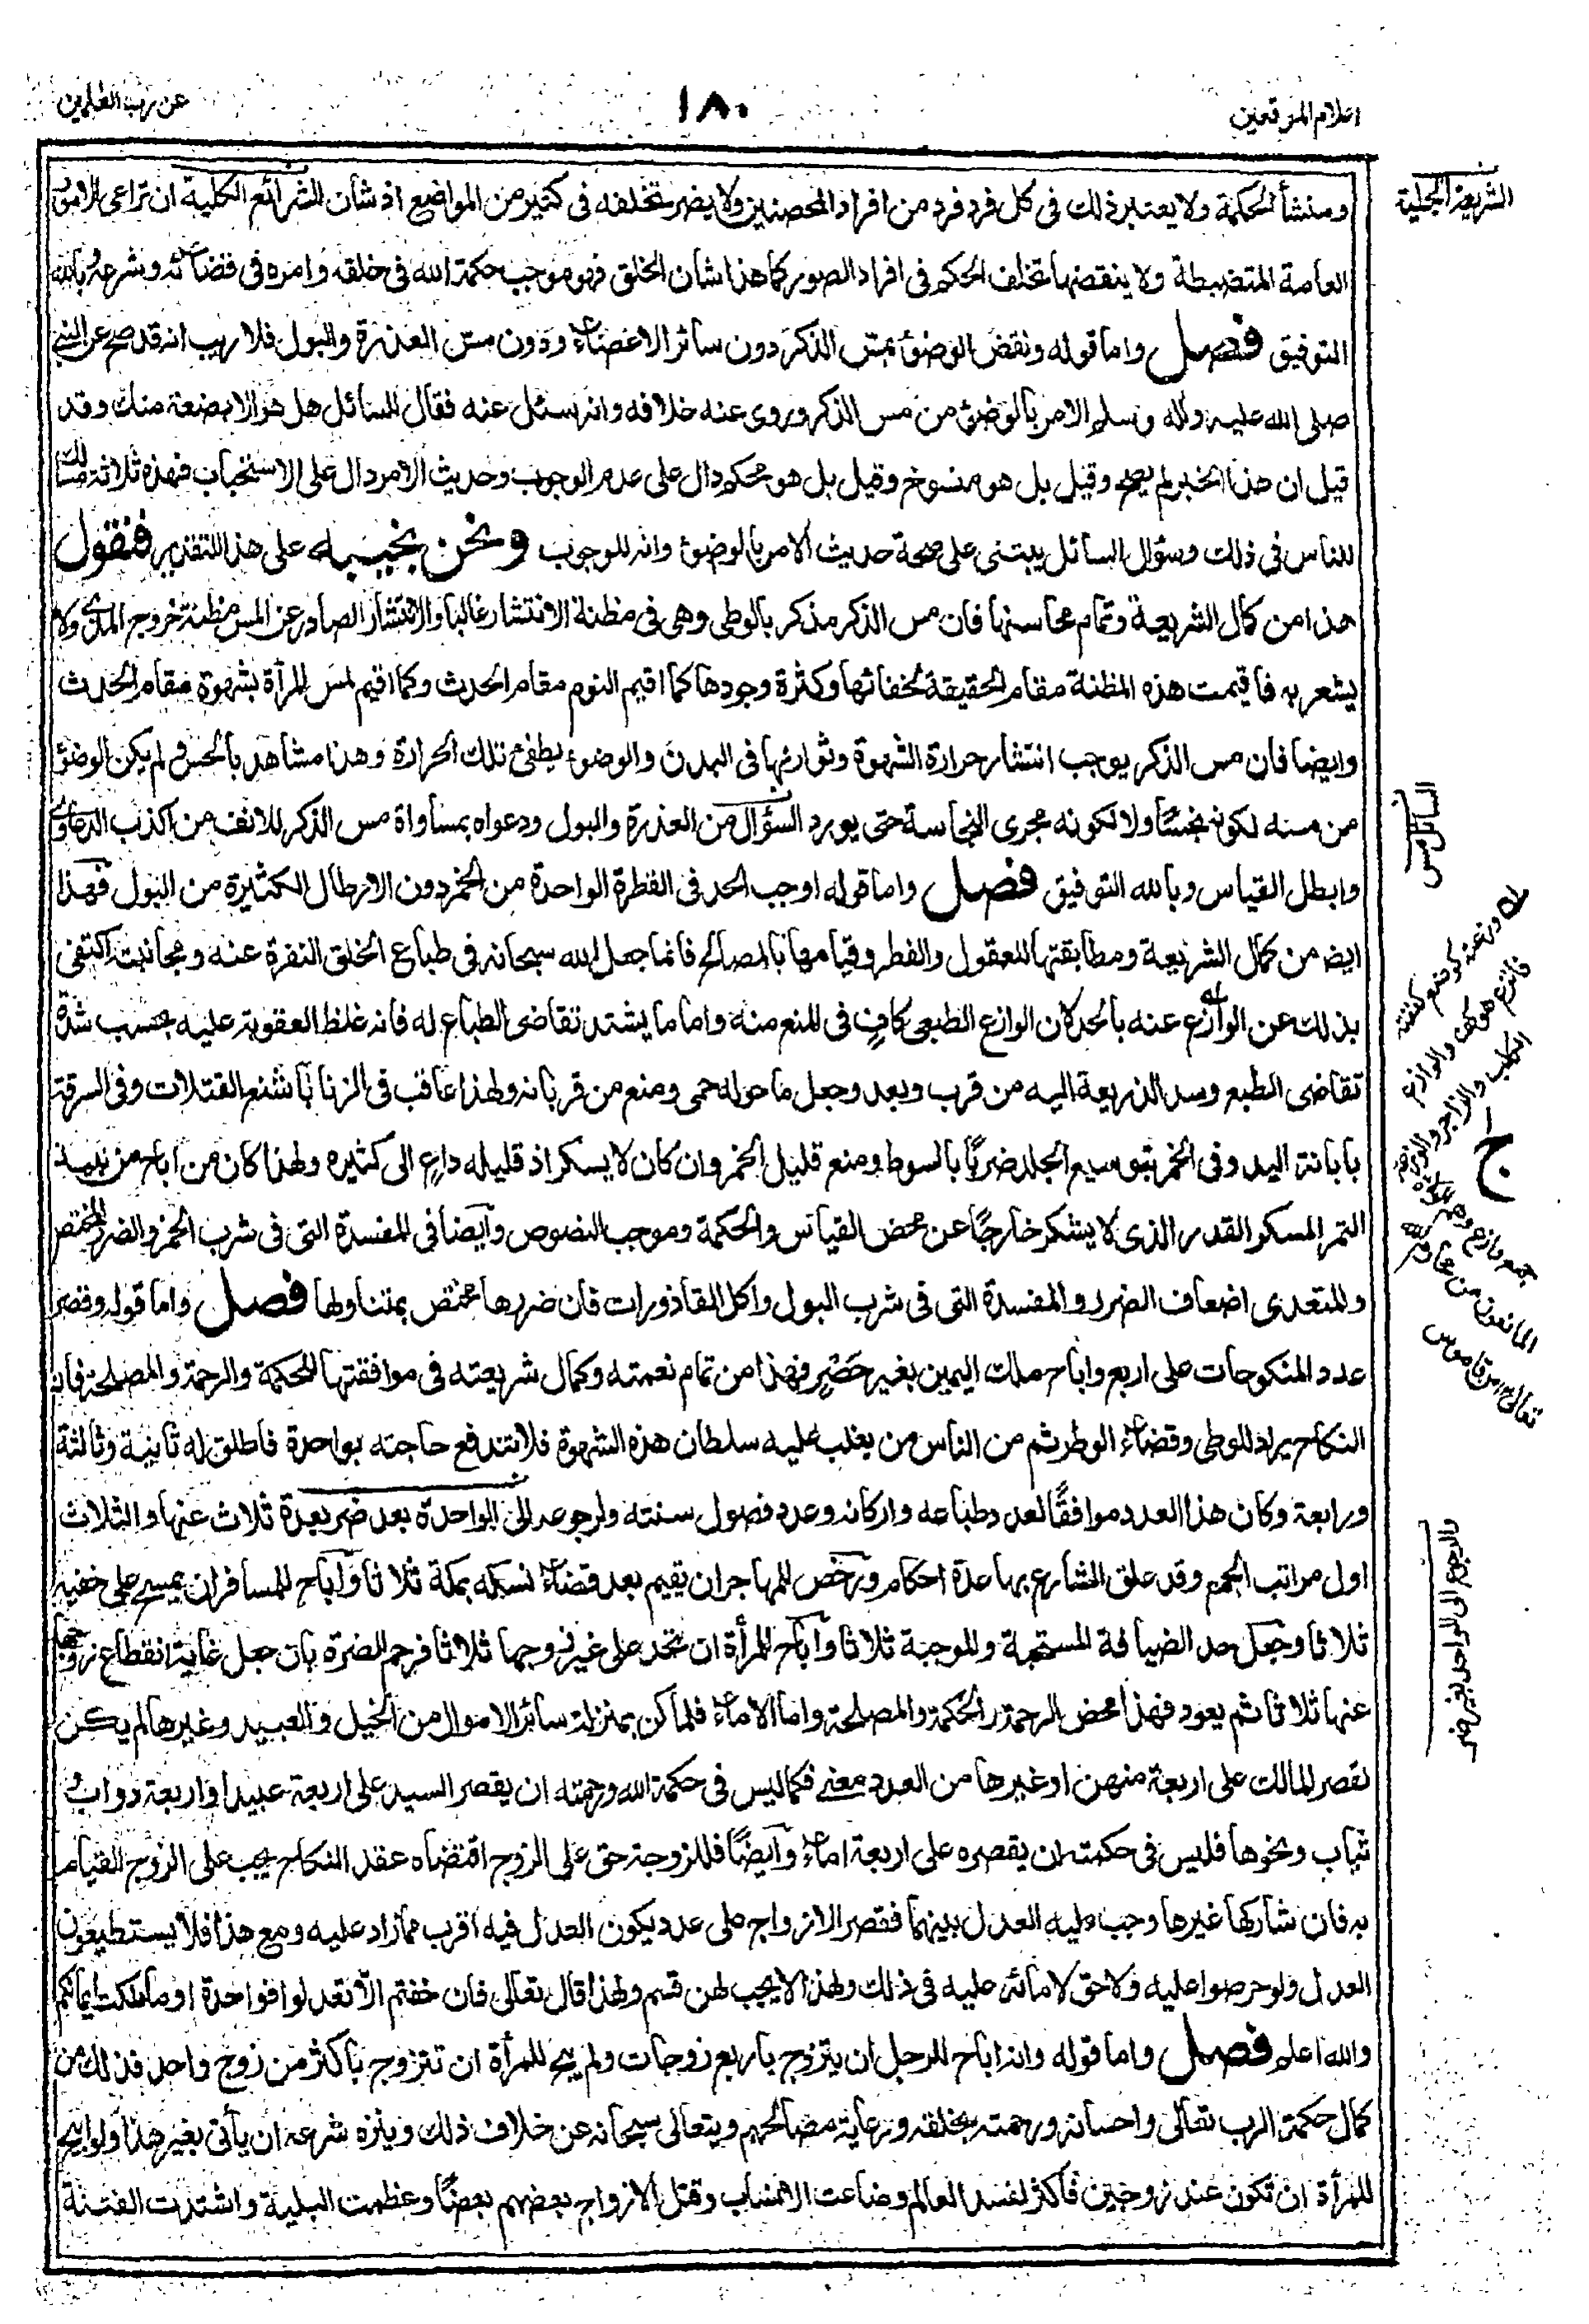 اعلام الموقعين
١٨٠
عن رب العلمين
ومنشأ الحكمة ولا يعتبر ذلك فى كل فرد فرد من افراد المحصنين ولا يضر تخلفه فى كثير من المواضع اذ شأن الشرائع الكلية ان تراعى الامور
العامة المنضبطة ولا ينقضها تخلف الحكم فى افراد الصور كما هذا شأن الخلق فهو موجب حكمة الله فى خلقه وامره فى قضائه وشرعه وبالله
التوفيق فصل واما قوله ونقض الوضوء بمس الذكر دون سائر الاعضاء ودون مس العذرة والبول فلا ريب انه قد صح عن النبي
صلى الله عليه واله وسلم الامر بالوضوء من مس الذكر وروى عنه خلافه وانه سئل عنه فقال للسائل هل هو الا بضعة منك وقد
قيل ان هذا الخبر لم يصح وقيل بل هو منسوخ وقيل بل هو محكم دال على عدم الوجوب وحديث الامر دال على الاستحباب فهذه ثلاثة مسالك
للناس فى ذلك وسؤال السائل يبتنى على صحة حديث الامر بالوضوء وانه للوجوب ونحن نجيبه على هذا التقدير فنقول
هذا من كمال الشريعة وتمام محاسنها فان مس الذكر مذكر بالوطى وهى فى مظنة الانتشار غالبا والانتشار الصادر عن المس مظنة خروج المذى ولا
يشعر به فاقيمت هذه المظنة مقام الحقيقة لخفائها وكثرة وجودها كما اقيم النوم مقام الحدث وكما اقيم لمس المرأة بشهوة مقام الحدث
وايضا فان مس الذكر يوجب انتشار حرارة الشهوة وثورانها فى البدن والوضوء يطفئ تلك الحرارة وهذا مشاهد بالحس ولم يكن الوضوء
من مسه لكونه نجسًا ولا لكونه مجرى النجاسة حتى يورد السؤال من العذرة والبول ودعواه بمساواة مس الذكر للانف من اكذب الدعاوى
وابطل القياس وبالله التوفيق فصل واما قوله اوجب الحد فى القطرة الواحدة من الخمر دون الارطال الكثيرة من البول فهذا
ايضا من كمال الشريعة ومطابقتها للعقول والفطر وقيامها بالمصالح فانما جعل الله سبحانه فى طباع الخلق النفرة عنه ومجانبته اكتفى
بذلك عن الوازع عنه بالحد لان الوازع الطبعى كافٍ فى المنع منه واما ما يشتد تقاضى الطباع له فانه غلظ العقوبة عليه بحسب شدة
تقاضى الطبع وسد الذريعة اليه من قرب وبعد وجعل ما حوله حمى ومنع من قربانه ولهذا عاقب فى الزنا باشنع القتلات وفى السرقة
بابانة اليد وفى الخمر بتوسيع الجلد ضربًا بالسوط ومنع قليل الخمر وان كان لا يسكر اذ قليله داعٍ الى كثيره ولهذا كان من اباح من نبيذ
التمر المسكر القدر الذى لا يسكر خارجًا عن محض القياس والحكمة وموجب النصوص وايضا فى المفسدة التى فى شرب الخمر والضرر المختص
والمتعدى اضعاف الضرر والمفسدة التى فى شرب البول واكل القاذورات فان ضررها مختص بمتناولها فصل واما قوله وقصر
عدد المنكوحات على اربع واباح ملك اليمين بغير حَصْرٍ فهذا من تمام نعمته وكمال شريعته فى موافقتها للحكمة والرحمة والمصلحة فان
النكاح يراد للوطى وقضاء الوطر ثم من الناس من يغلب عليه سلطان هذه الشهوة فلا تندفع حاجته بواحدة فاطلق له ثانية وثالثة
ورابعة وكان هذا العدد موافقًا لعدد طباعه واركانه وعدد فصول سنته ولرجوعه الى الواحدة بعد صبر بعدة ثلاث عنها والثلاث
اول مراتب الجمع وقد علق الشارع بها عدة احكام ورخص للمهاجر ان يقيم بعد قضاء نسكه بمكة ثلاثا واباح للمسافر ان يمسح على خفيه
ثلاثا وجعل حد الضيافة المستحبة والموجبة ثلاثا واباح للمرأة ان تحد على غير زوجها ثلاثا فرحم الضرة بان جعل غاية انقطاع زوجها
عنها ثلاثا ثم يعود فهذا محض الرحمة والحكمة والمصلحة واما الاماء فلما كن بمنزلة سائر الاموال من الخيل والعبيد وغيرها لم يكن
لقصر المالك على اربعة منهن او غيرها من العدد معنى فكما ليس فى حكمة الله ورحمته ان يقصر السيد على اربعة عبيدا واربعة دواب
ثياب ونحوها فليس فى حكمته ان يقصره على اربعة اماء وايضًا فللزوجة حق على الزوج اقتضاه عقد النكاح يجب على الزوج القيام
به فان شاركها غيرها وجب عليه العدل بينهما فقصر الازواج على عدد يكون العدل فيه اقرب مما زاد عليه ومع هذا فلا يستطيعون
العدل ولو حرصوا عليه ولا حق لامائه عليه فى ذلك ولهذا لا يجب لهن قسم ولهذا قال تعالى فان خفتم الا تعدلوا فواحدة او ما ملكت ايمانكم
والله اعلم فصل واما قوله وانه اباح للرجل ان يتزوج باربع زوجات ولم يبح للمرأة ان تتزوج باكثر من زوج واحد فذلك من
كمال حكمة الرب تعالى واحسانه ورحمته بخلقه ورعاية مصالحهم ويتعالى سبحانه عن خلاف ذلك وينزه شرعه ان يأتى بغير هذا ولو ابيح
للمرأة ان تكون عند زوجين فاكثر لفسد العالم وضاعت الانساب وقتل الازواج بعضهم بعضًا وعظمت البلية واشتدت الفتنة
الشريعة الجلية
السائل مس
وزعته كوضع كففته
فاتزع هو كف والوازع
الكلب والزاجر
ج
جمع وازع وهم الولاة
المانعون من محارم الله
تعالى من قاموس
بالرجوع الى الواحدة بغير ضر